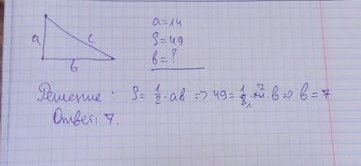 a
c
b
a = 14
S = 49
b = ?
Решение: S = 1/2 · ab => 49 = 1/2 · 14 · b => b = 7
Ответ: 7.